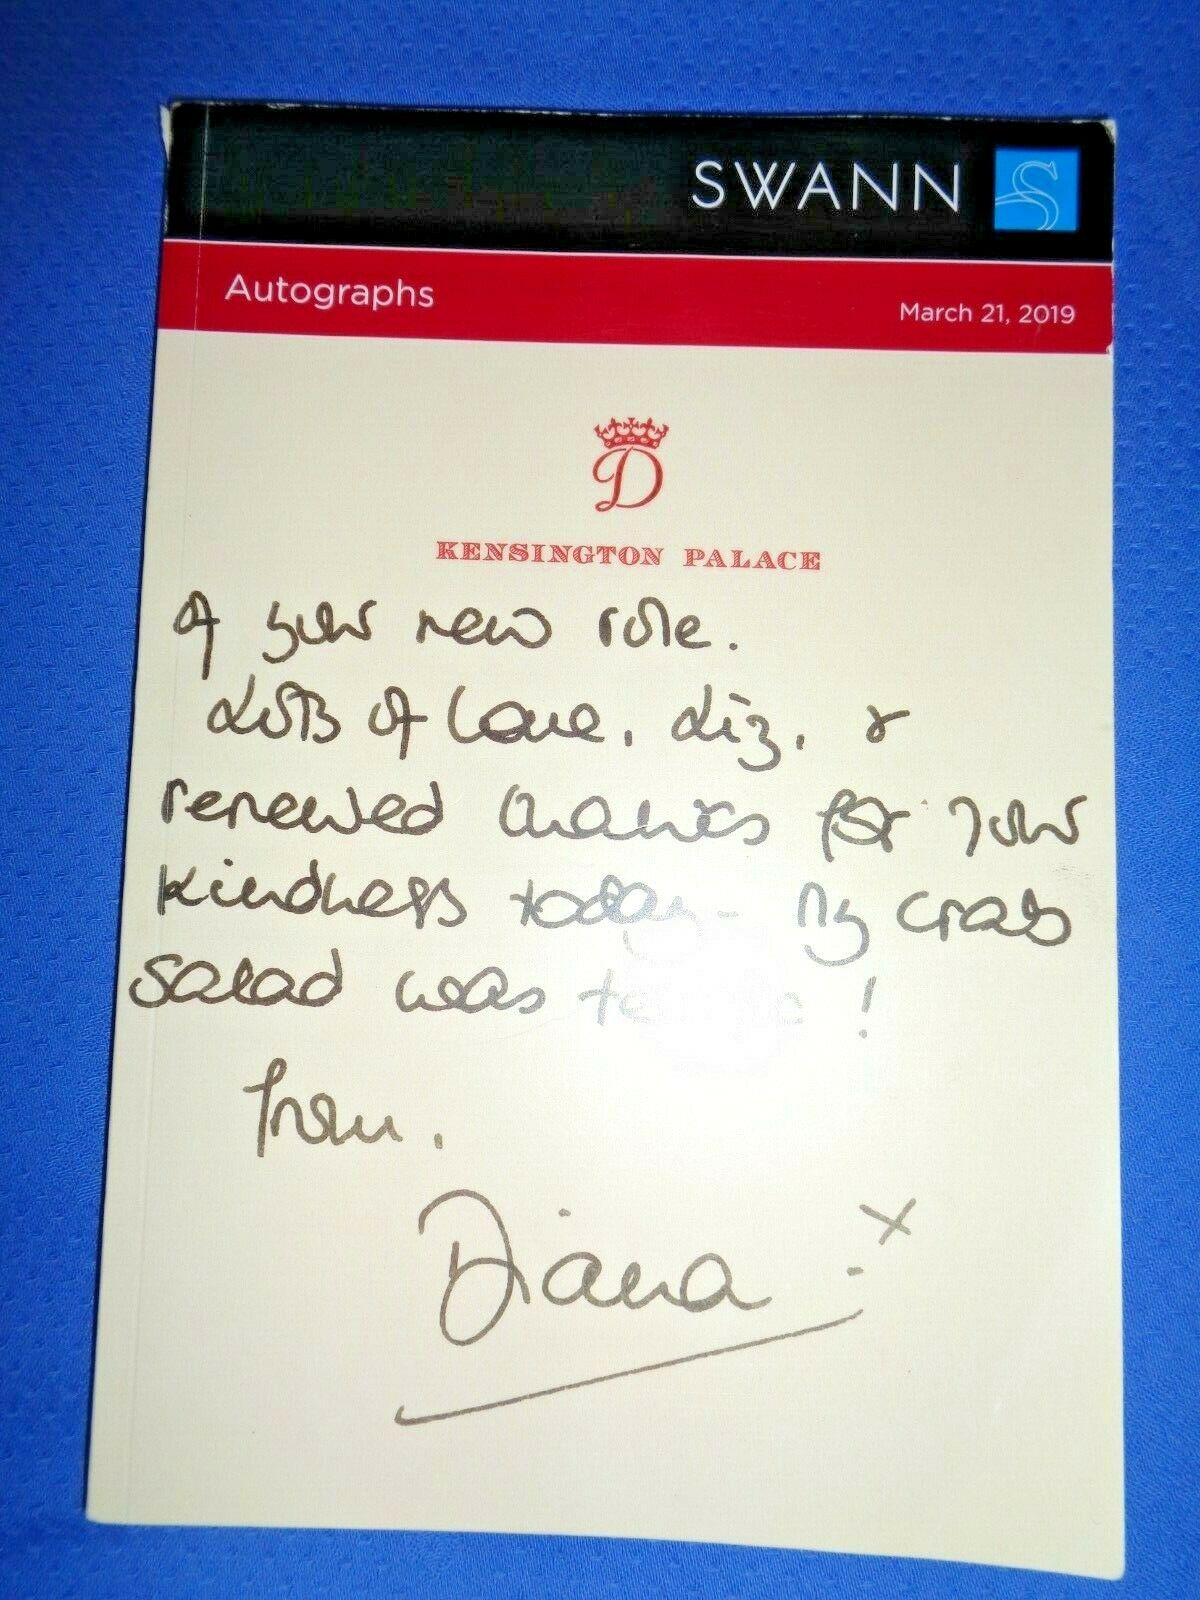 SWANN
Autographs
March 21, 2019
D
KENSINGTON PALACE
of your new role.
Lots of love, Liz, &
renewed thanks for your
kindness today - My crab
salad was terrific!
from,
Diana x